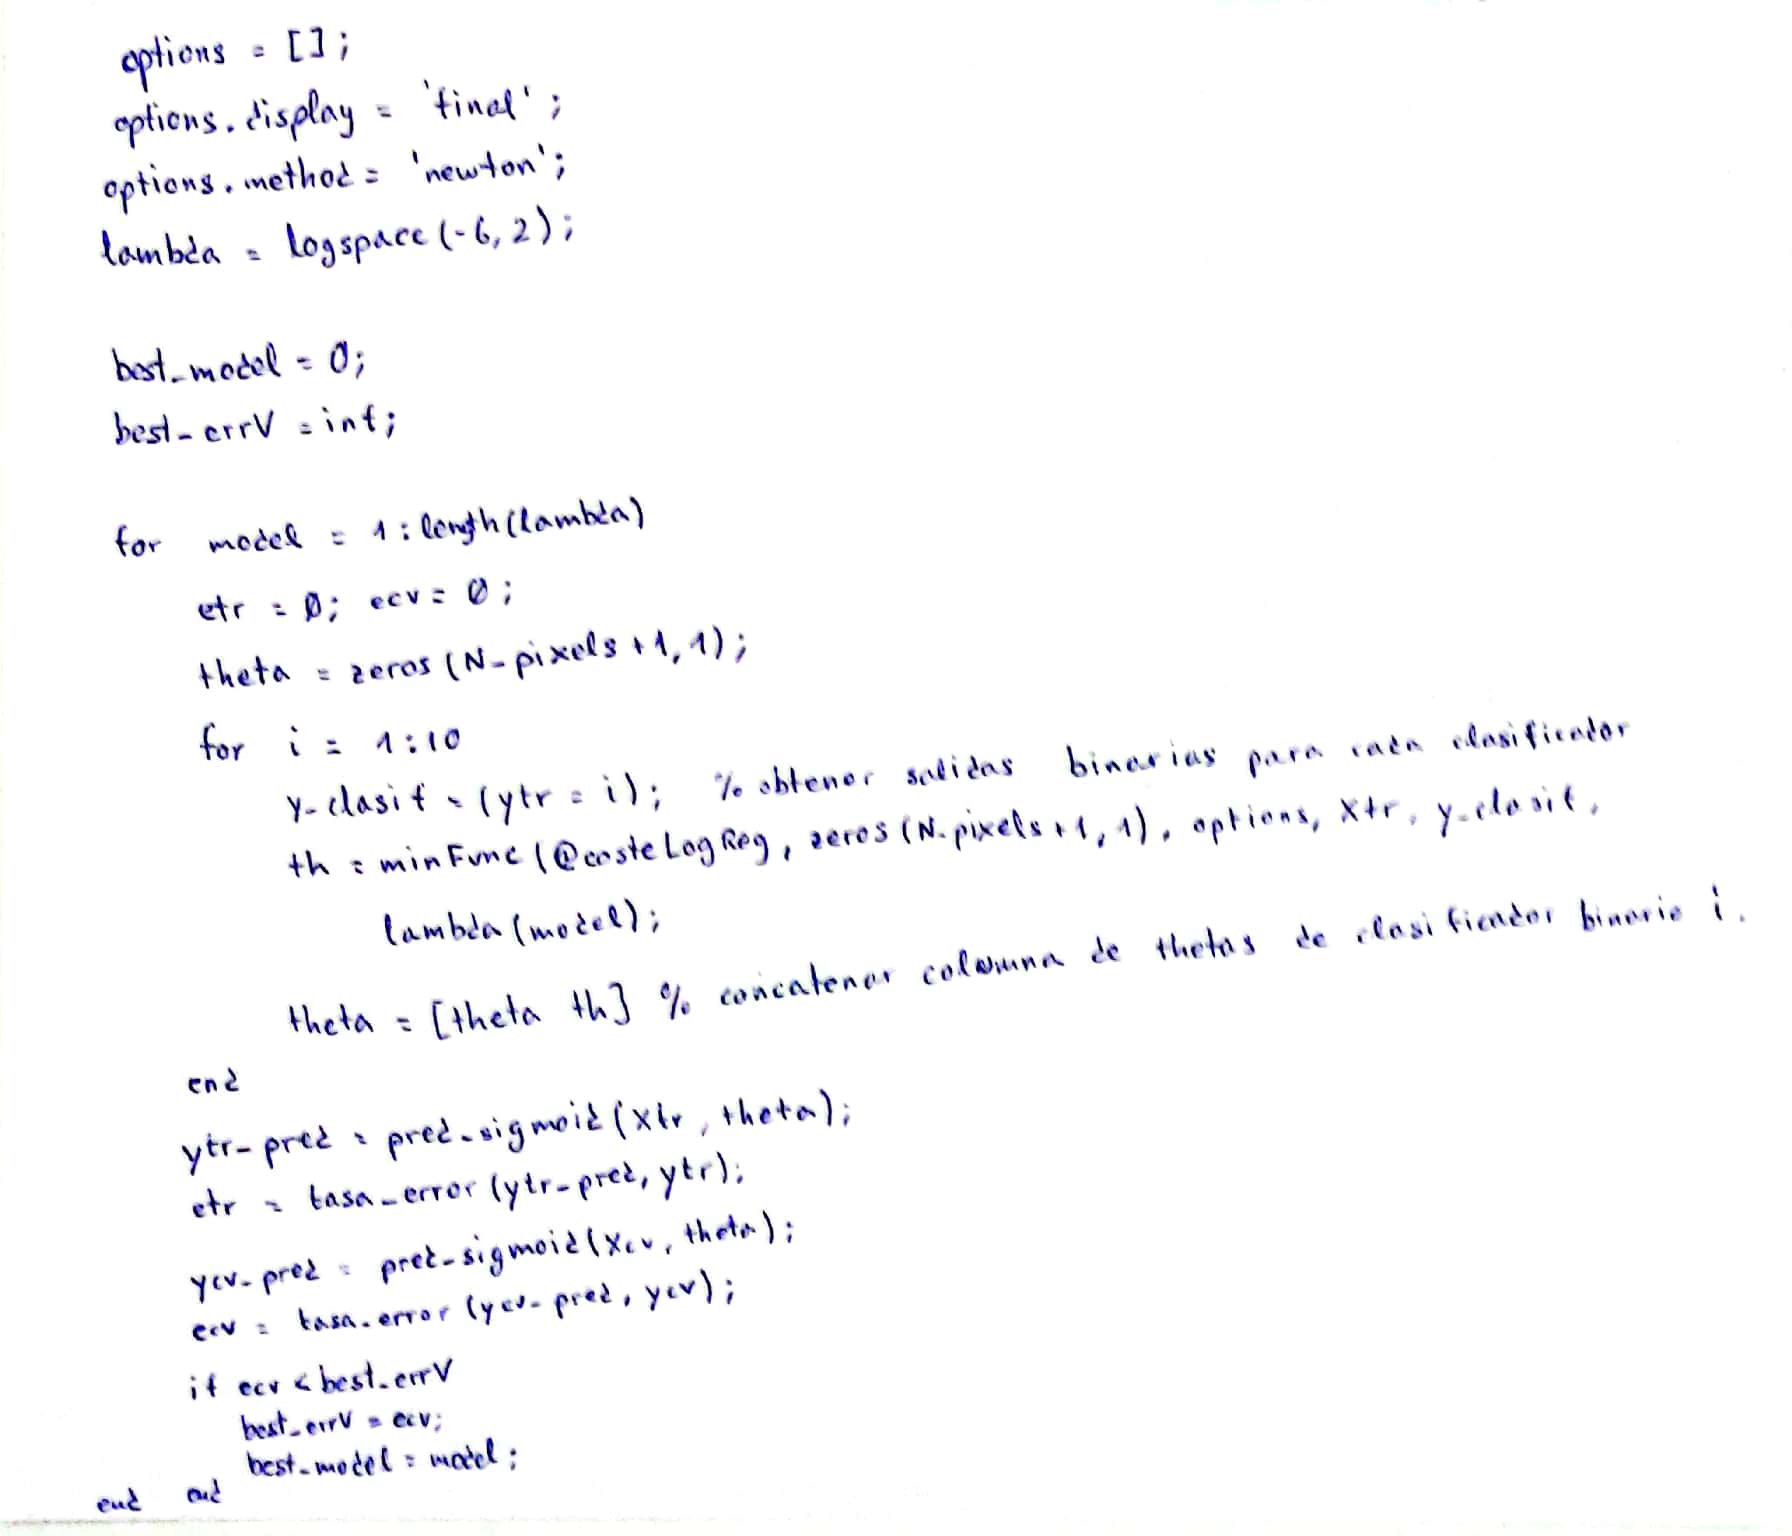 options = [];
options.display = 'final';
options.method = 'newton';
lambda = logspace(-6,2);
best_model = 0;
best_errV = inf;
for model = 1:length(lambda)
etr = 0; ecv = 0;
theta = zeros(N_pixels+1,1);
for i = 1:10
y_clasif = (ytr = i); % obtener salidas binarias para cada clasificador
th = minFunc(@costeLogReg, zeros(N_pixels+1,1), options, Xtr, y_clasif,
lambda(model);
theta = [theta th] % concatenar columna de thetas de clasificador binario i.
end
ytr_pred = pred_sigmoid(Xtr, theta);
etr = tasa_error(ytr_pred, ytr);
ycv_pred = pred_sigmoid(Xcv, theta);
ecv = tasa_error(ycv_pred, ycv);
if ecv < best_errV
best_errV = ecv;
best_model = model;
end end